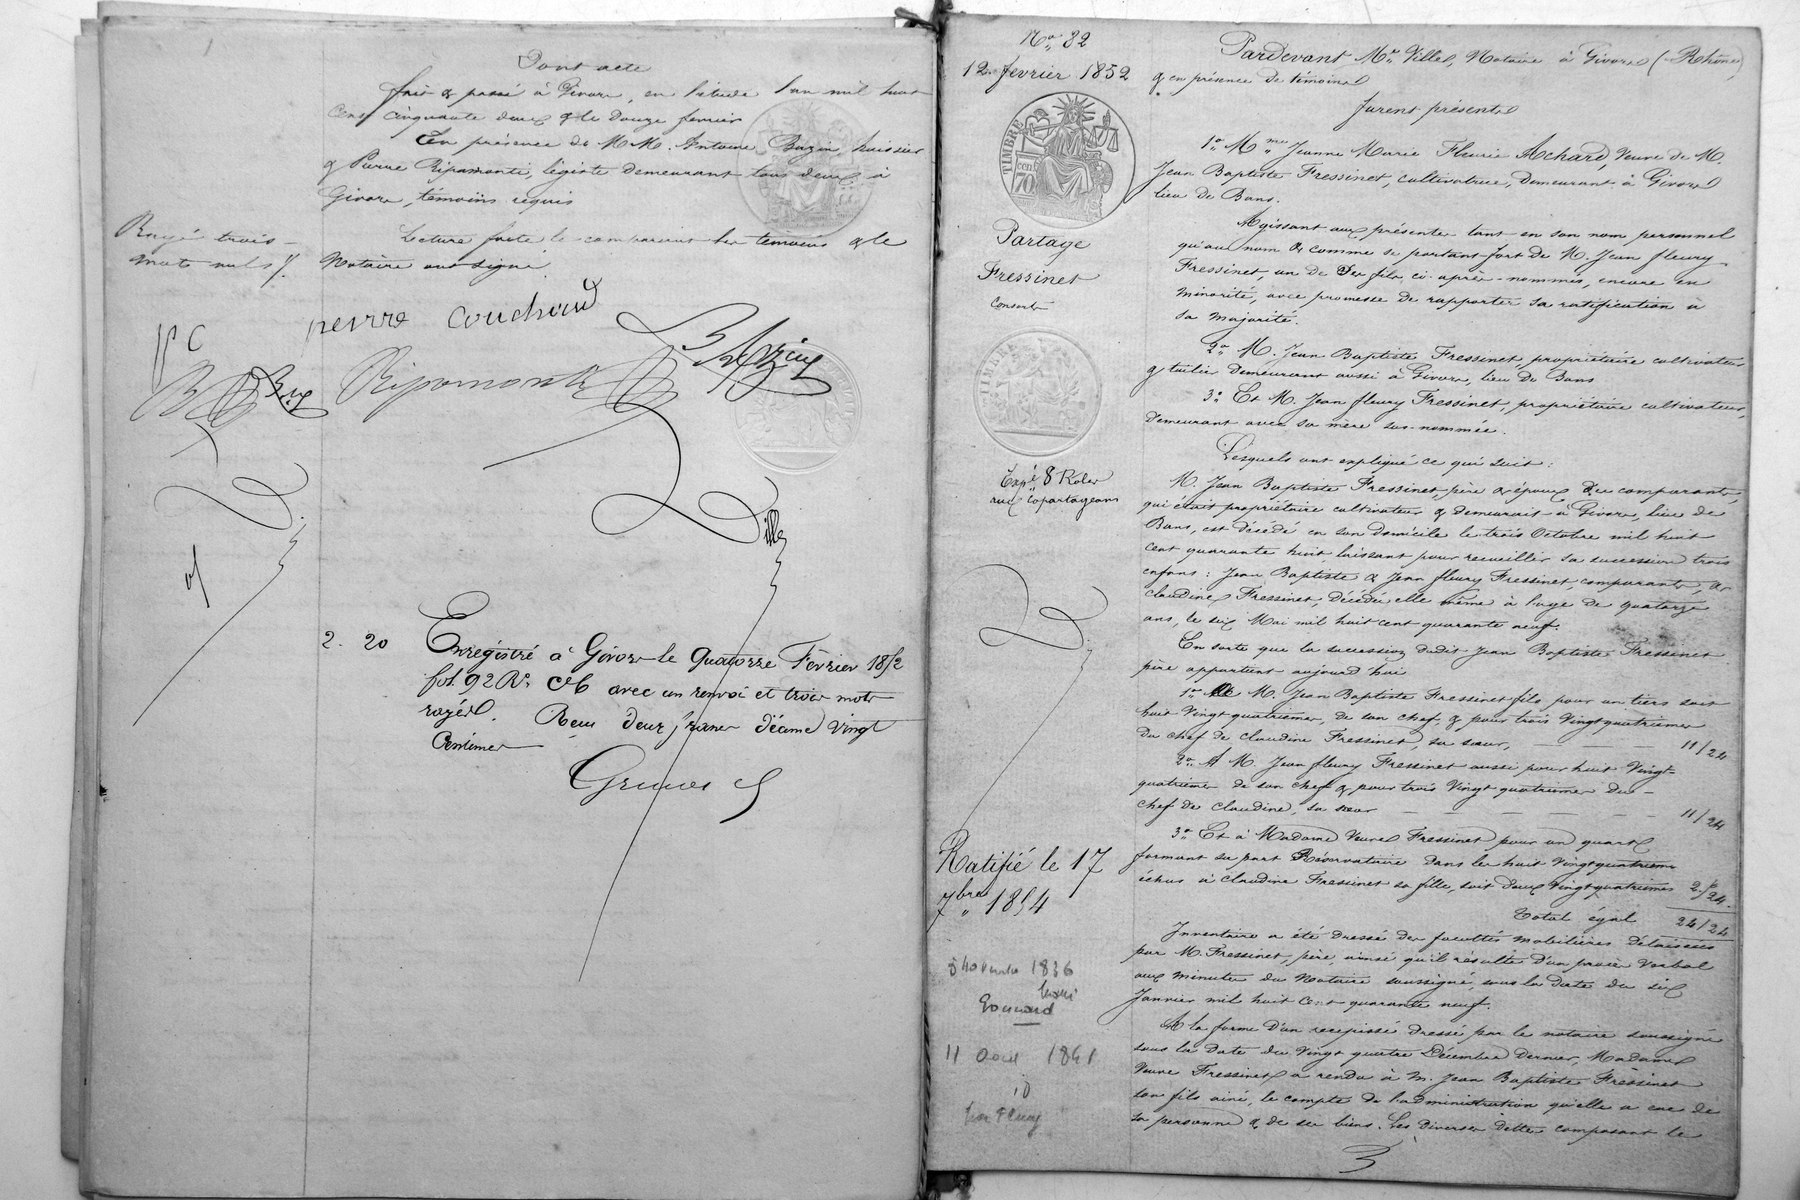 Dont acte
fait & passé à Givors, en l'étude l'an mil huit
cent cinquante deux & le Douze février
En présence de M.M. Antoine Bazin, huissier
& Pierre Ripamonti, légiste demeurant tous deux à
Givors, témoins requis
Lecture faite le comparant les temoins & le
Notaire ont signé.
Rayé trois
mots nuls
pierre couchoud
pc
Ripamonti
BAzin
Ville
2. 20
Enregistré à Givors le quatorze Février 1852
fol. 92 Ro. Ce 6 avec un renvoi et trois mots
rayés. Reçu deux francs décime vingt
Centimes
No. 32
12 fevrier 1852
TIMBRE
70
CEN
Partage
Fressinet
Consorts
TIMBRE
Expé 8 Roles
aux Copartageans
Ratifié le 17
7bre 1854
8 Novembre 1836
11 Avril 1841
Jean Fleury
Pardevant Me. Ville, Notaire à Givors (Rhône)
& en présence de témoins
furent présents
1o. Mme Jeanne Marie Fleurie Achard, Veuve de M.
Jean Baptiste Fressinet, cultivatrice, Demeurant à Givors
lieu de Bans.
Agissant aux présentes tant en son nom personnel
qu'au nom & comme se portant fort de M. Jean fleury
Fressinet, un de Ses fils, ci-après-nommés, encore en
minorité, avec promesse de rapporter sa ratification à
sa majorité.
2o. M. Jean Baptiste Fressinet, propriétaire cultivateur
& tuilier Demeurant aussi à Givors, lieu de Bans
3o. Et M. Jean fleury Fressinet, propriétaire cultivateur,
Demeurant avec sa mère sus-nommée.
Lesquels ont expliqué ce qui suit:
M. Jean Baptiste Fressinet, père & époux des comparants
qui était propriétaire cultivateur & demeurait à Givors, lieu de
Bans, est décédé en son domicile le trois Octobre mil huit
cent quarante huit, laissant pour recueillir sa succession trois
enfans: Jean Baptiste & Jean fleury Fressinet, comparants, &
claudine Fressinet, Décédée elle même à l'age de quatorze
ans, le six Mai mil huit cent quarante neuf.
En sorte que la succession dudit Jean Baptiste Fressinet
père appartient aujourd'hui
1o. M. Jean Baptiste Fressinet fils pour un tiers soit
huit Vingt quatriemes, de son chef, & pour trois Vingt quatriemes
Du chef de Claudine Fressinet, sa sœur, 11/24
2o. A M. Jean fleury Fressinet aussi pour huit Vingt-
quatriemes de son chef & pour trois Vingt quatriemes du
chef de Claudine, sa sœur 11/24
3o. Et à Madame Veuve Fressinet pour un quart
formant sa part Réservataire dans les huit Vingt quatriemes
échus à Claudine Fressinet sa fille, soit deux Vingt quatriemes 2/24.
Total égal 24/24
Inventaire a été dressé des facultés mobilières délaissées
par M. Fressinet, père, ainsi qu'il résulte d'un procès Verbal
aux minutes du Notaire soussigné, sous la date du six
Janvier mil huit cent quarante neuf.
A la forme d'un recepissé dressé par le notaire soussigné
sous la date du Vingt quatre Décembre Dernier, Madame
Veuve Fressinet a rendu à M. Jean Baptiste Fressinet
son fils ainé, le compte de l'administration qu'elle a eue de
sa personne & de ses biens. Les diverses dettes composant le